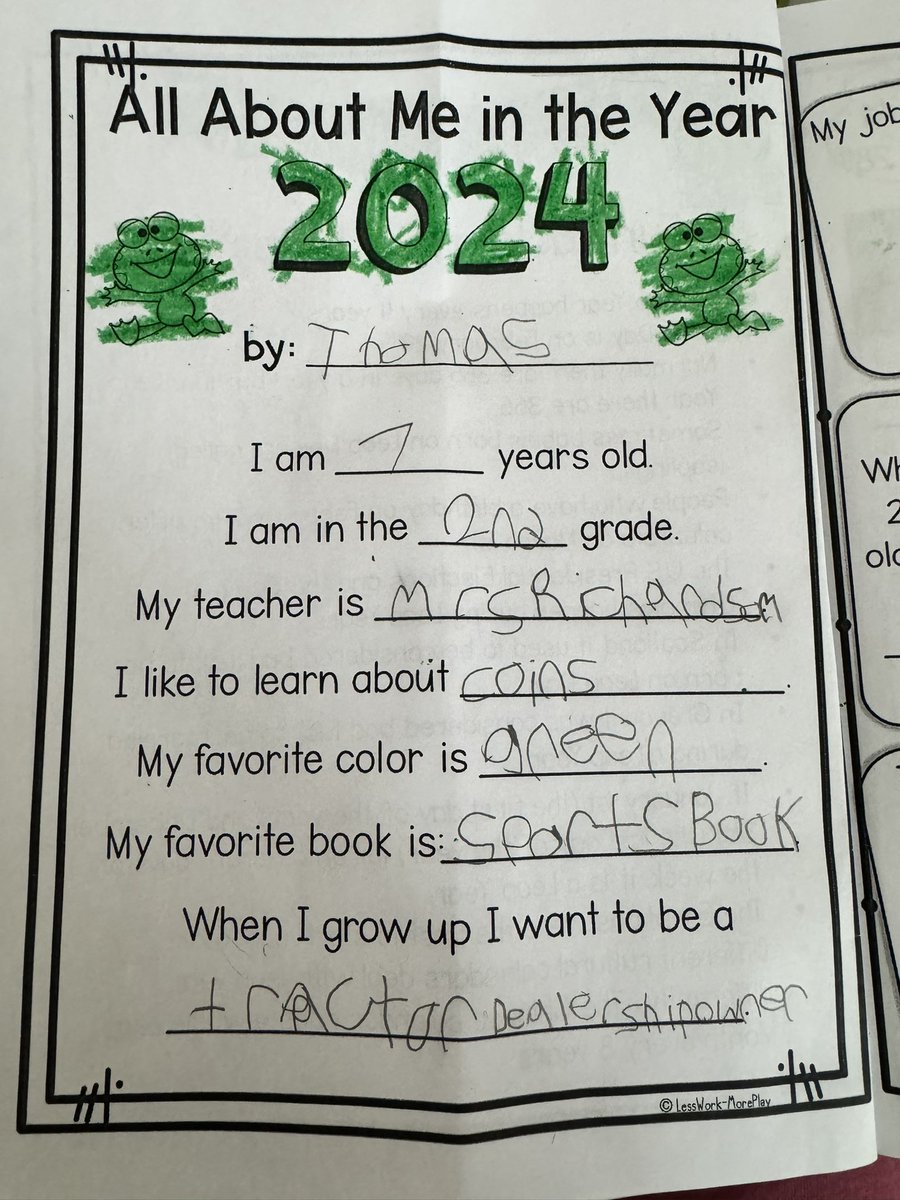 All About Me in the Year
2024
by: Thomas
I am 7 years old.
I am in the 2nd grade.
My teacher is Mrs Richardson
I like to learn about coins.
My favorite color is green.
My favorite book is: Sports Book
When I grow up I want to be a
tractor Dealership owner
© LessWork-MorePlay
My job
Wh
2
old